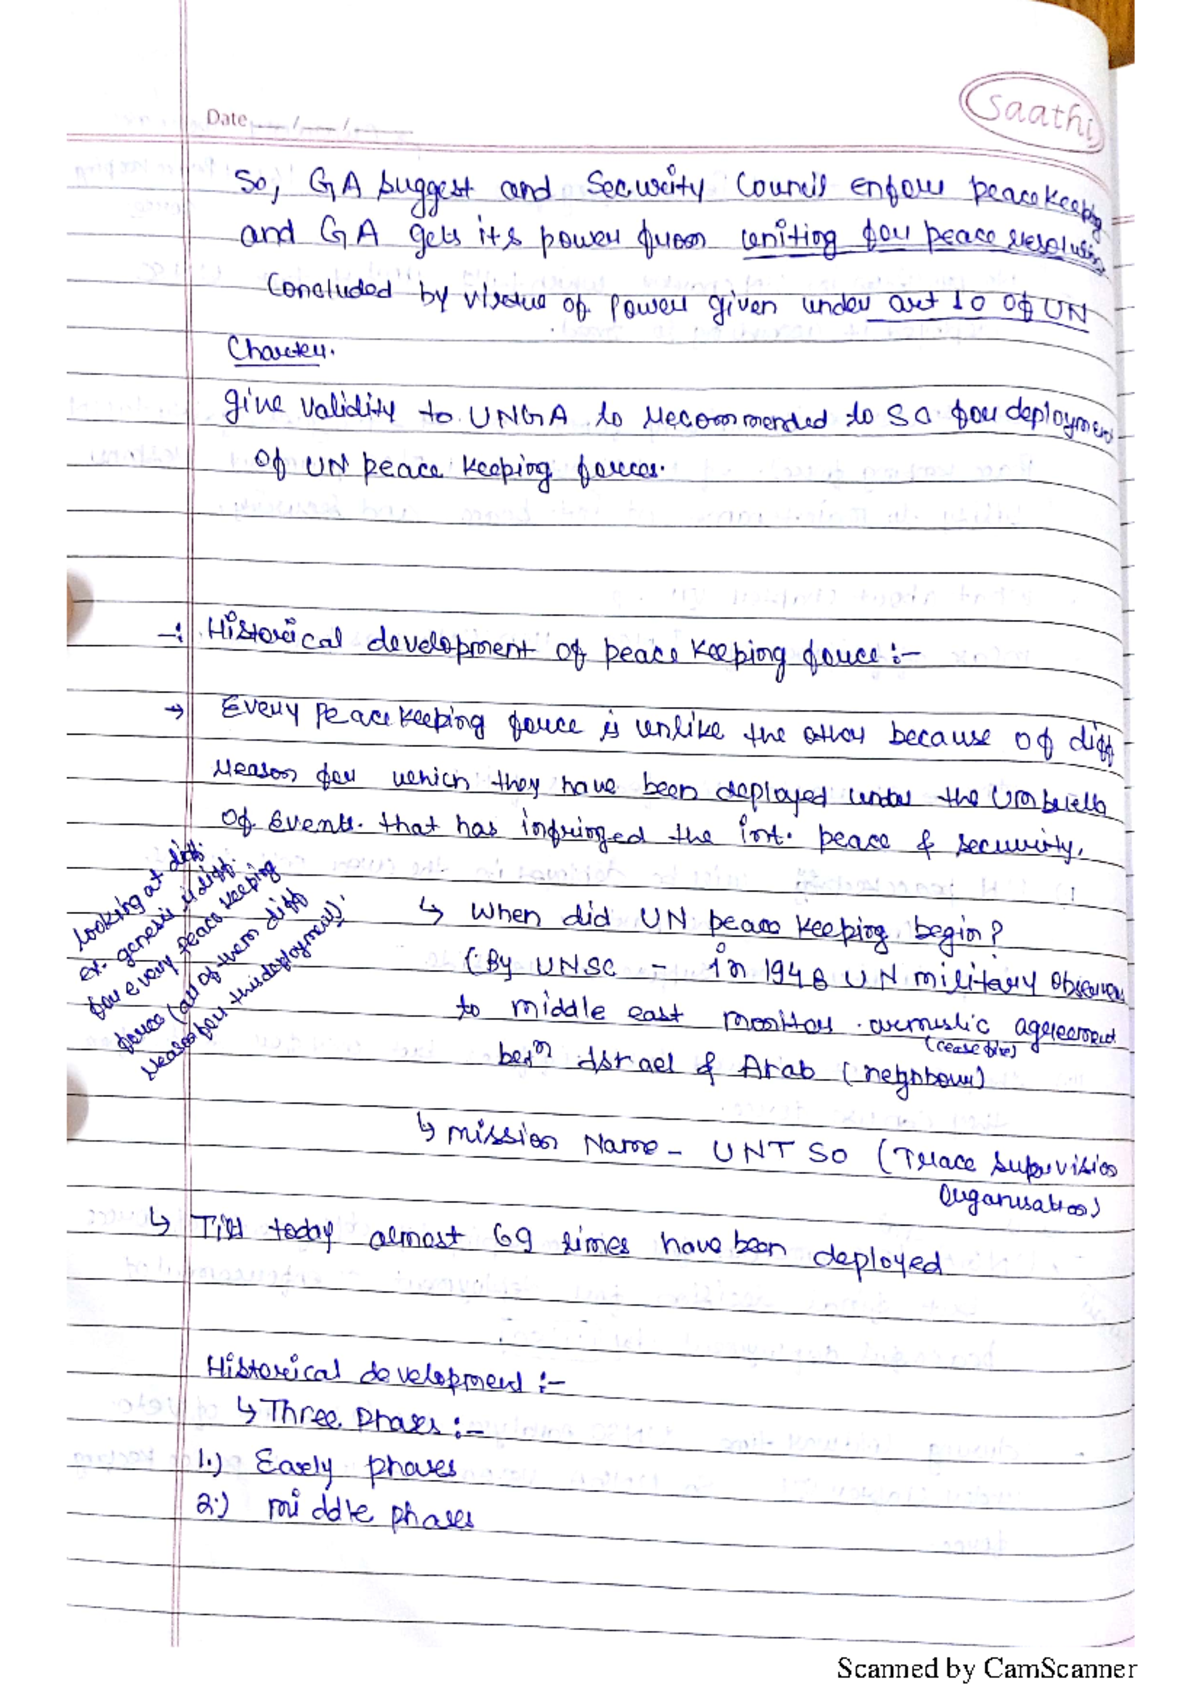 Date ___/___/___
Saathi
So, GA suggest and Security Council enforce peacekeeping
and GA gets its power from uniting for peace resolution
Concluded by virtue of power given under art 10 of UN
Charter.
give validity to UNGA to recommended to SC for deployment
of UN peace keeping forces.
-: Historical development of peace keeping force :-
→ Every peace keeping force is unlike the other because of diff
reason for which they have been deployed under the Umbrella
of events that has infringed the int. peace & security.
looking at diff.
ex. genesis is diff.
for every peace keeping
force (all of them diff
reason for this deployment).
↳ When did UN peace keeping begin?
(By UNSC - in 1948 UN military observers
to middle east monitor armistic agreement
(cease fire)
betn Israel & Arab (neighbour)
↳ Mission Name - UNTSO (Truce Supervision
Organisation)
↳ Till today almost 69 times have been deployed
Historical development :-
↳ Three Phases :-
1.) Early phases
2.) middle phases
Scanned by CamScanner